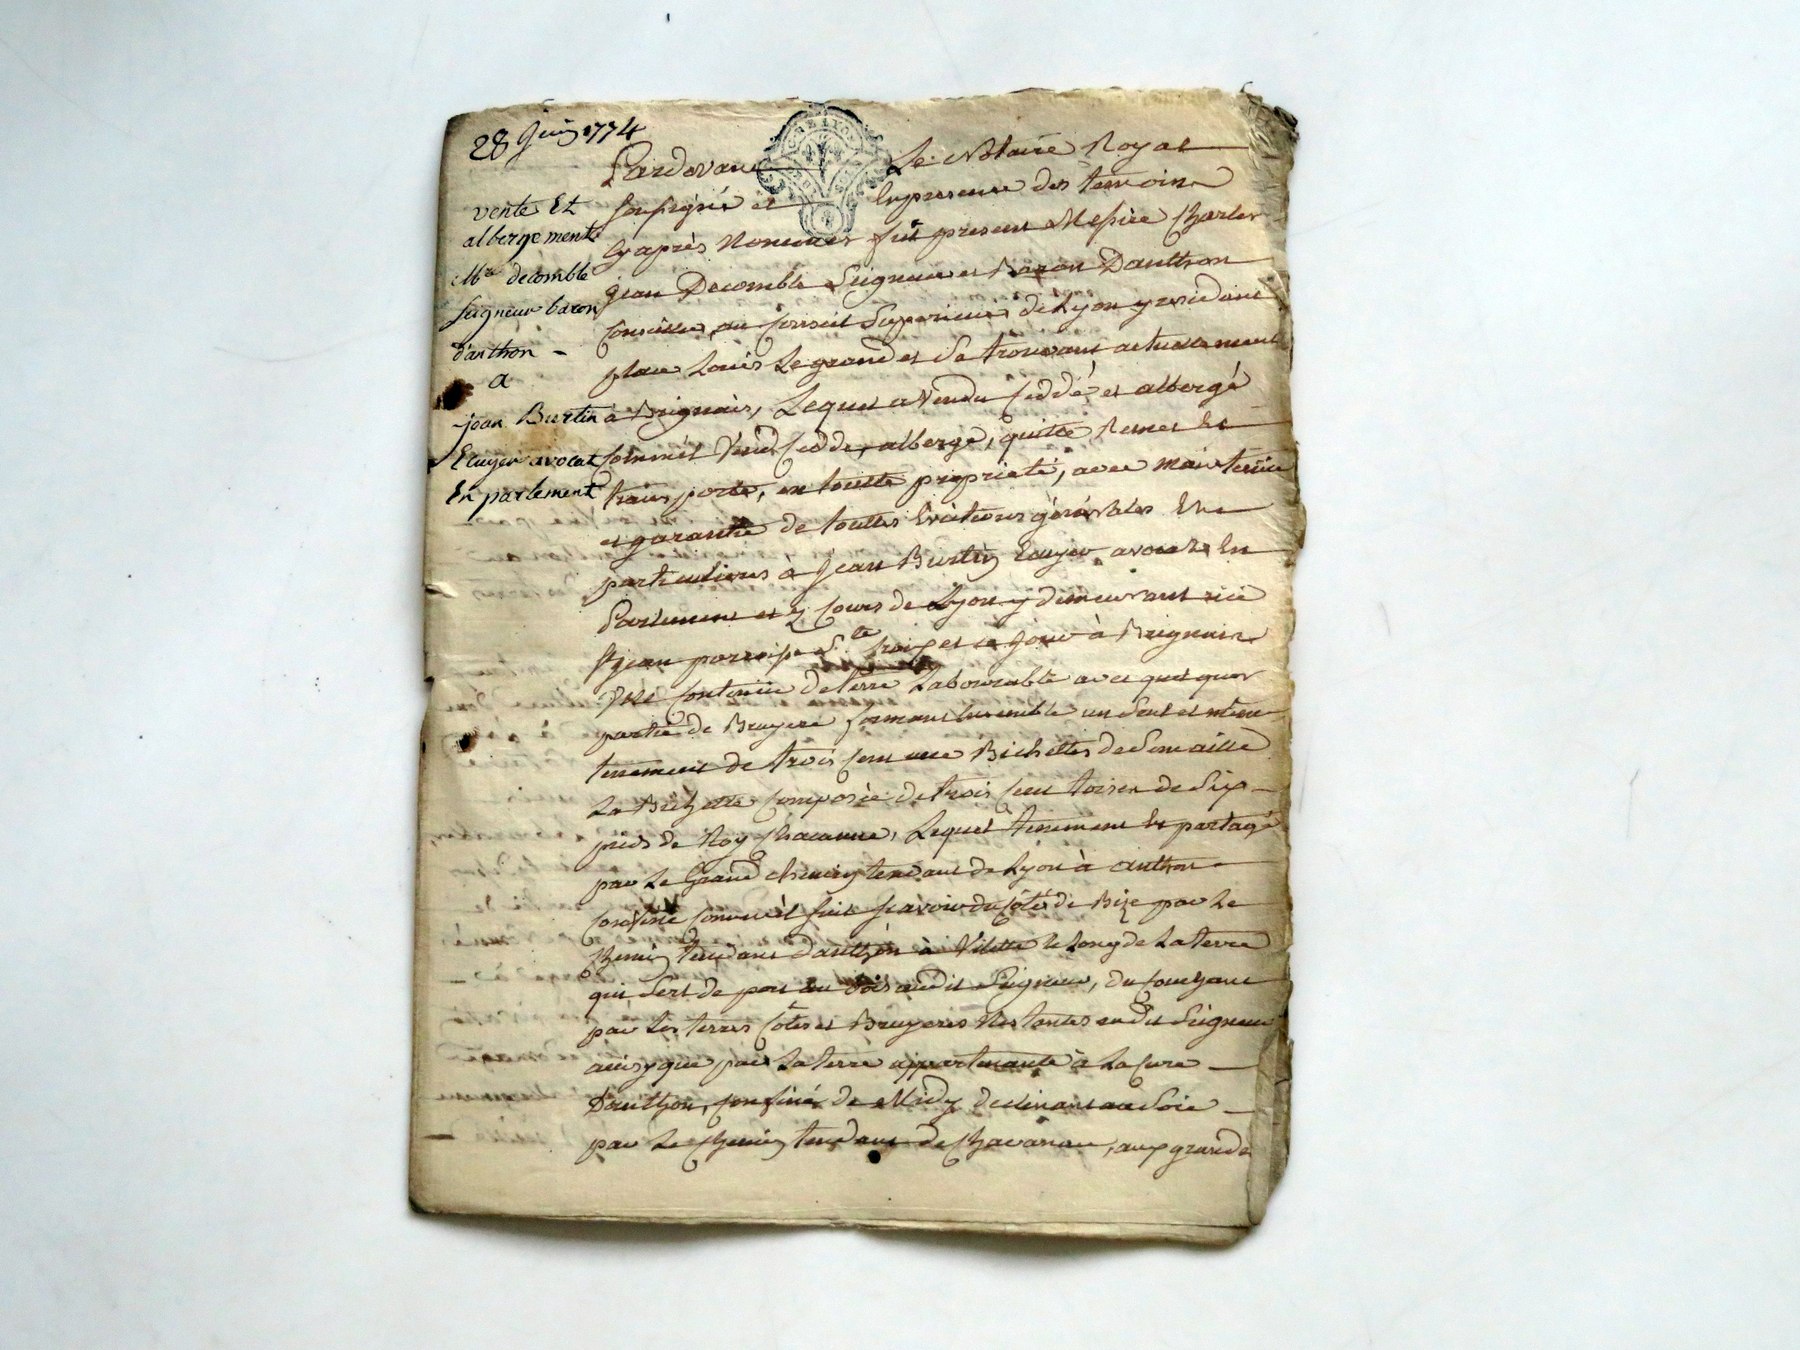 28 Juin 1774
vente Et
albergement
Mre decomble
seigneur baron
d'anthon -
a
jean Burtin
Ecuyer avocat
En parlement
Pardevant Le Notaire Royal
soussigné et En presence des temoins
cy après Nommés fut present Messire Charles
jean Decomble Seigneur et Baron Danthon
Conseiller au Conseil Superieur de Lyon y residant
place Louis Le grand et se trouvant actuellement
à Brignais, Lequel a Vendu Ceddé et albergé
Comme il Vend Cedde, alberge, quitte Remet et
transporte, en toutte proprieté, avec maintenüe
et garantie de touttes Evictions généralles Et
particulieres a Jean Burtin Ecuyer avocat En
Parlement et Cours de Lyon y demeurant rüe
St jean parroisse Ste Croix et ce jour à Brignais
Une Contenüe de terre Labourable avec quelque
partie de Bruyere formant Ensemble un seul et même
tenement de trois Cent Bichettes de Semaille
La Bichette Composée de trois Cent toises de Six
pieds de Roy Chacunne, Lequel tenement Est partagé
par Le Grand chemin tendant de Lyon à anthon
Confiné Comme il suit sçavoir du Côté de Bize par Le
Chemin tendant d'anthon à Vilette le Long de La terre
qui Sert de au Bois audit Seigneur, du Couchant
par Les terres Côtes et Bruyeres Restantes audit Seigneur
ainsy que par La terre appartenante à La Cure
Danthon, Confiné de Midy declinant au Soir
par Le Chemin tendant de Chavanou, aux grandes